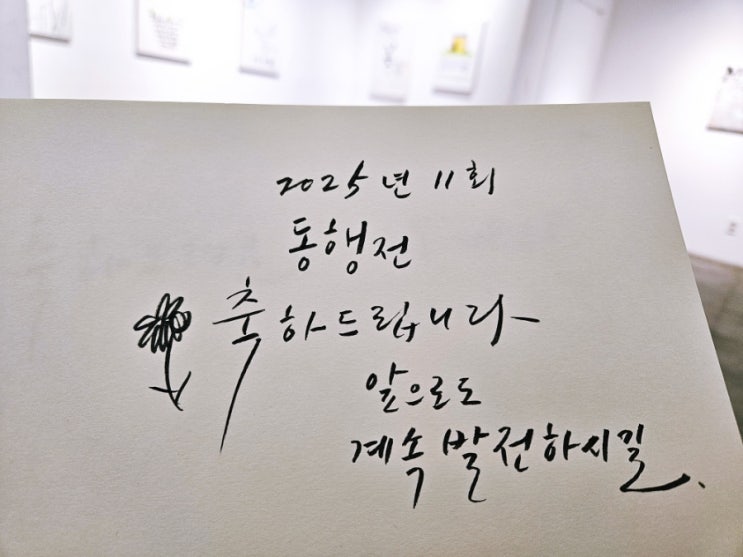 2025년 11회
동행전
축하드립니다
앞으로도
계속 발전하시길.